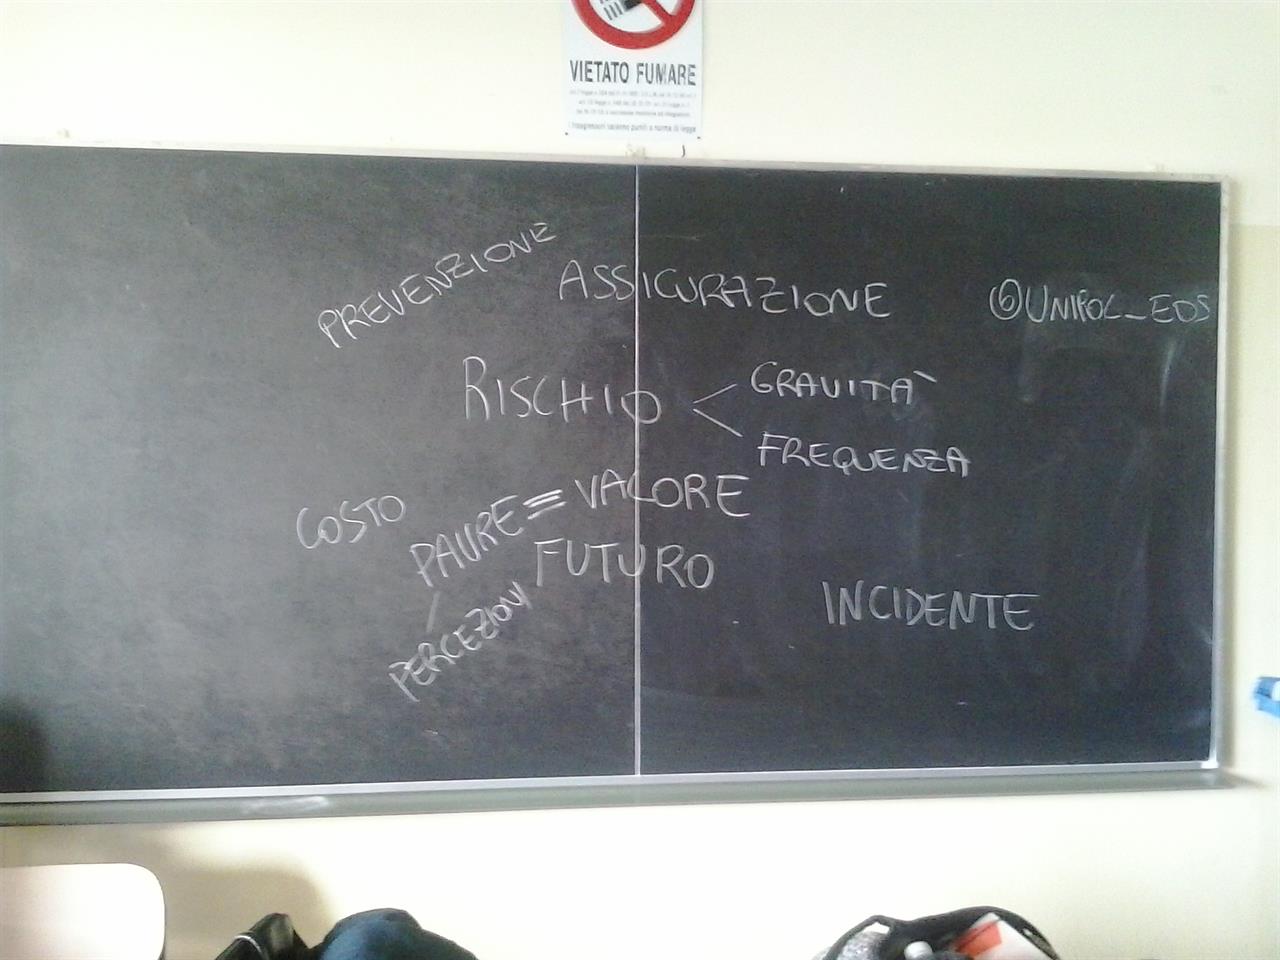 VIETATO FUMARE
i trasgressori saranno puniti a norma di legge
PREVENZIONE
ASSICURAZIONE
@UNIPOL_EOS
RISCHIO
GRAVITÀ
FREQUENZA
COSTO
PAURE = VALORE
FUTURO
PERCEZIONI
INCIDENTE